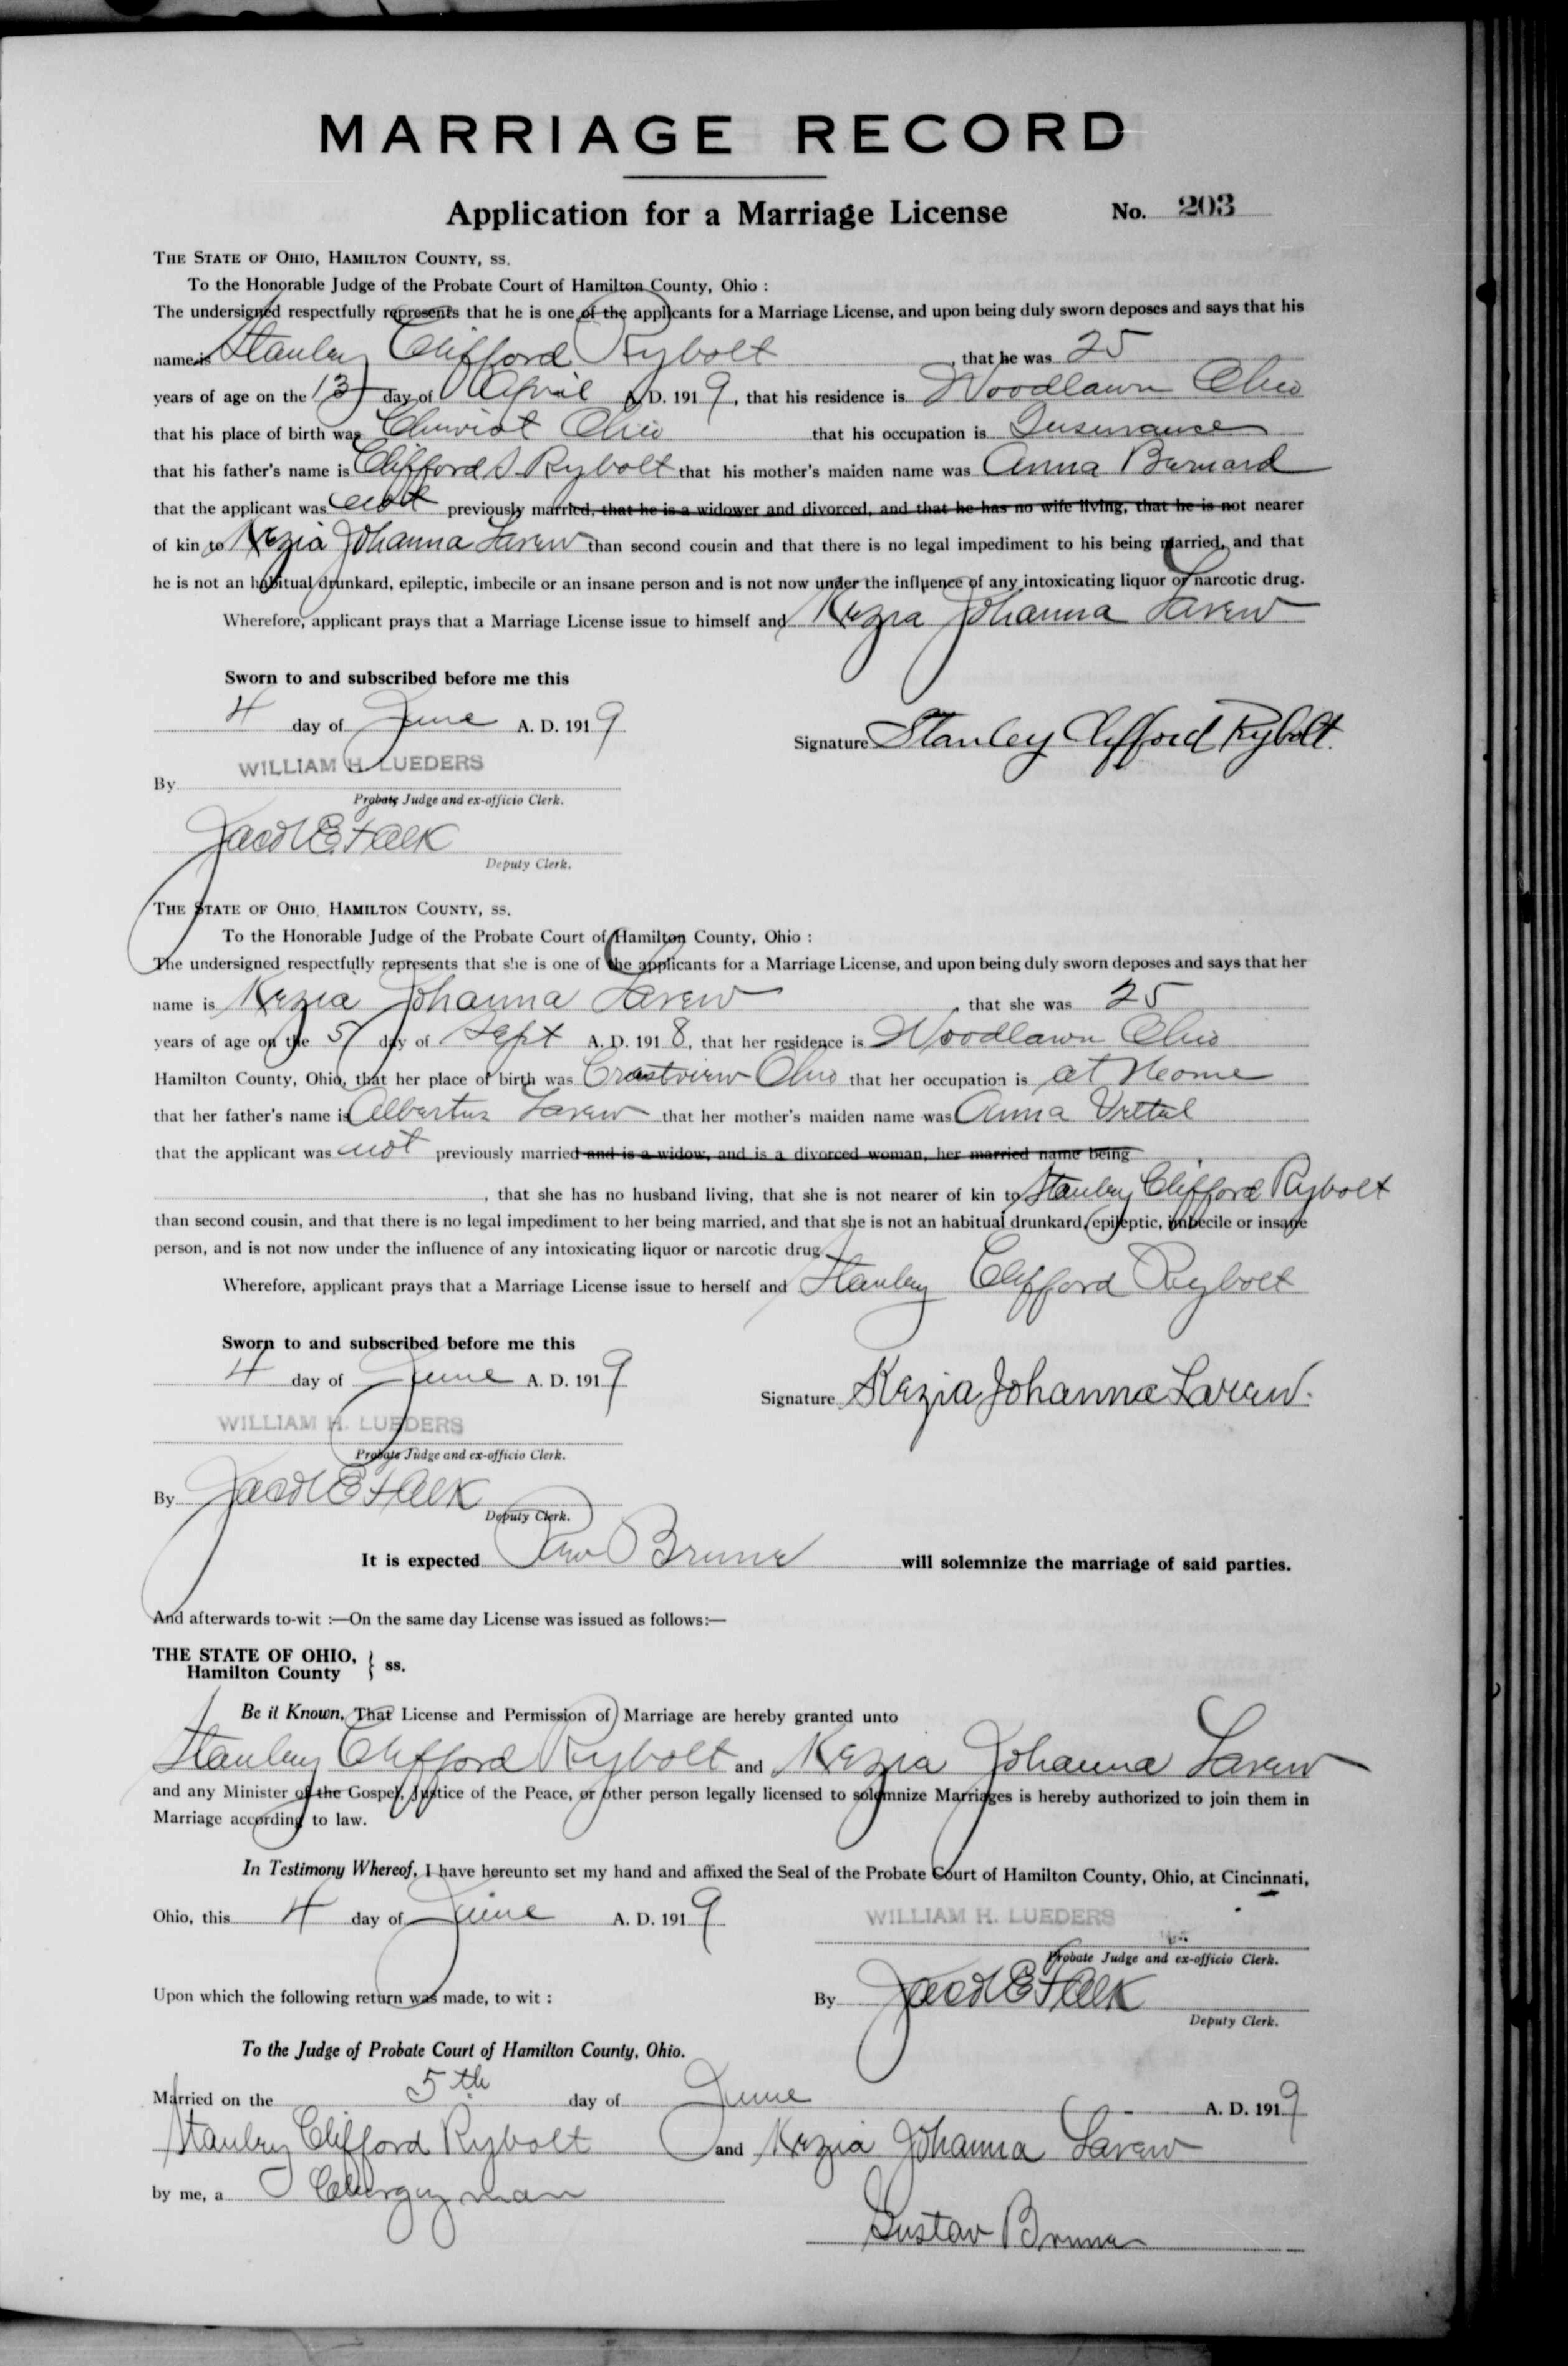 MARRIAGE RECORD
Application for a Marriage License No. 203
THE STATE OF OHIO, HAMILTON COUNTY, ss.
To the Honorable Judge of the Probate Court of Hamilton County, Ohio :
The undersigned respectfully represents that he is one of the applicants for a Marriage License, and upon being duly sworn deposes and says that his
name is Stanley Clifford Rybolt, that he was 25
years of age on the 13 day of April A. D. 1919, that his residence is Woodlawn Ohio
that his place of birth was Cheviot Ohio that his occupation is Insurance
that his father's name is Clifford S Rybolt that his mother's maiden name was Anna Burnard
that the applicant was not previously married, that he is a widower and divorced, and that he has no wife living, that he is not nearer
of kin to Kezia Johanna Larew than second cousin and that there is no legal impediment to his being married, and that
he is not an habitual drunkard, epileptic, imbecile or an insane person and is not now under the influence of any intoxicating liquor or narcotic drug.
Wherefore, applicant prays that a Marriage License issue to himself and Kezia Johanna Larew
Sworn to and subscribed before me this
4 day of June A. D. 1919
Signature Stanley Clifford Rybolt.
WILLIAM H. LUEDERS
By
Probate Judge and ex-officio Clerk.
Jacob E Falk
Deputy Clerk.
THE STATE OF OHIO, HAMILTON COUNTY, ss.
To the Honorable Judge of the Probate Court of Hamilton County, Ohio :
The undersigned respectfully represents that she is one of the applicants for a Marriage License, and upon being duly sworn deposes and says that her
name is Kezia Johanna Larew, that she was 25
years of age on the 5 day of Sept A. D. 1918, that her residence is Woodlawn Ohio
Hamilton County, Ohio, that her place of birth was Crestview Ohio that her occupation is at Home
that her father's name is Albertus Larew that her mother's maiden name was Anna Vettel
that the applicant was not previously married and is a widow, and is a divorced woman, her married name being
, that she has no husband living, that she is not nearer of kin to Stanley Clifford Rybolt
than second cousin, and that there is no legal impediment to her being married, and that she is not an habitual drunkard, epileptic, imbecile or insane
person, and is not now under the influence of any intoxicating liquor or narcotic drug.
Wherefore, applicant prays that a Marriage License issue to herself and Stanley Clifford Rybolt
Sworn to and subscribed before me this
4 day of June A. D. 1919
Signature Kezia Johanna Larew.
WILLIAM H. LUEDERS
Probate Judge and ex-officio Clerk.
By Jacob E Falk
Deputy Clerk.
It is expected Rev Brune will solemnize the marriage of said parties.
And afterwards to-wit :—On the same day License was issued as follows:—
THE STATE OF OHIO,
Hamilton County } ss.
Be it Known, That License and Permission of Marriage are hereby granted unto
Stanley Clifford Rybolt and Kezia Johanna Larew
and any Minister of the Gospel, Justice of the Peace, or other person legally licensed to solemnize Marriages is hereby authorized to join them in
Marriage according to law.
In Testimony Whereof, I have hereunto set my hand and affixed the Seal of the Probate Court of Hamilton County, Ohio, at Cincinnati,
Ohio, this 4 day of June A. D. 1919
WILLIAM H. LUEDERS
Probate Judge and ex-officio Clerk.
Upon which the following return was made, to wit :
By Jacob E Falk
Deputy Clerk.
To the Judge of Probate Court of Hamilton County, Ohio.
Married on the 5th day of June A. D. 1919
Stanley Clifford Rybolt and Kezia Johanna Larew
by me, a Clergyman
Gustav Brune